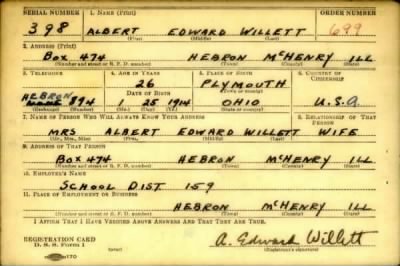 SERIAL NUMBER 1. NAME (Print) ORDER NUMBER
398 ALBERT EDWARD WILLETT 699
(First) (Middle) (Last)
2. ADDRESS (Print)
BOX 474 HEBRON McHENRY ILL
(Number and street or R. F. D. number) (Town) (County) (State)
3. TELEPHONE 4. AGE IN YEARS 5. PLACE OF BIRTH 6. COUNTRY OF CITIZENSHIP
26 PLYMOUTH
HEBRON DATE OF BIRTH (Town or county)
894 1 25 1914 OHIO U.S.A
(Exchange) (Number) (Mo.) (Day) (Yr.) (State or country)
7. NAME OF PERSON WHO WILL ALWAYS KNOW YOUR ADDRESS 8. RELATIONSHIP OF THAT PERSON
MRS ALBERT EDWARD WILLETT WIFE
(Mr., Mrs., Miss) (First) (Middle) (Last)
9. ADDRESS OF THAT PERSON
BOX 474 HEBRON McHENRY ILL
(Number and street or R. F. D. number) (Town) (County) (State)
10. EMPLOYER'S NAME
SCHOOL DIST. 159
11. PLACE OF EMPLOYMENT OR BUSINESS
HEBRON McHENRY ILL
(Number and street or R. F. D. number) (Town) (County) (State)
I AFFIRM THAT I HAVE VERIFIED ABOVE ANSWERS AND THAT THEY ARE TRUE.
REGISTRATION CARD
D. S. S. Form 1
A. Edward Willett